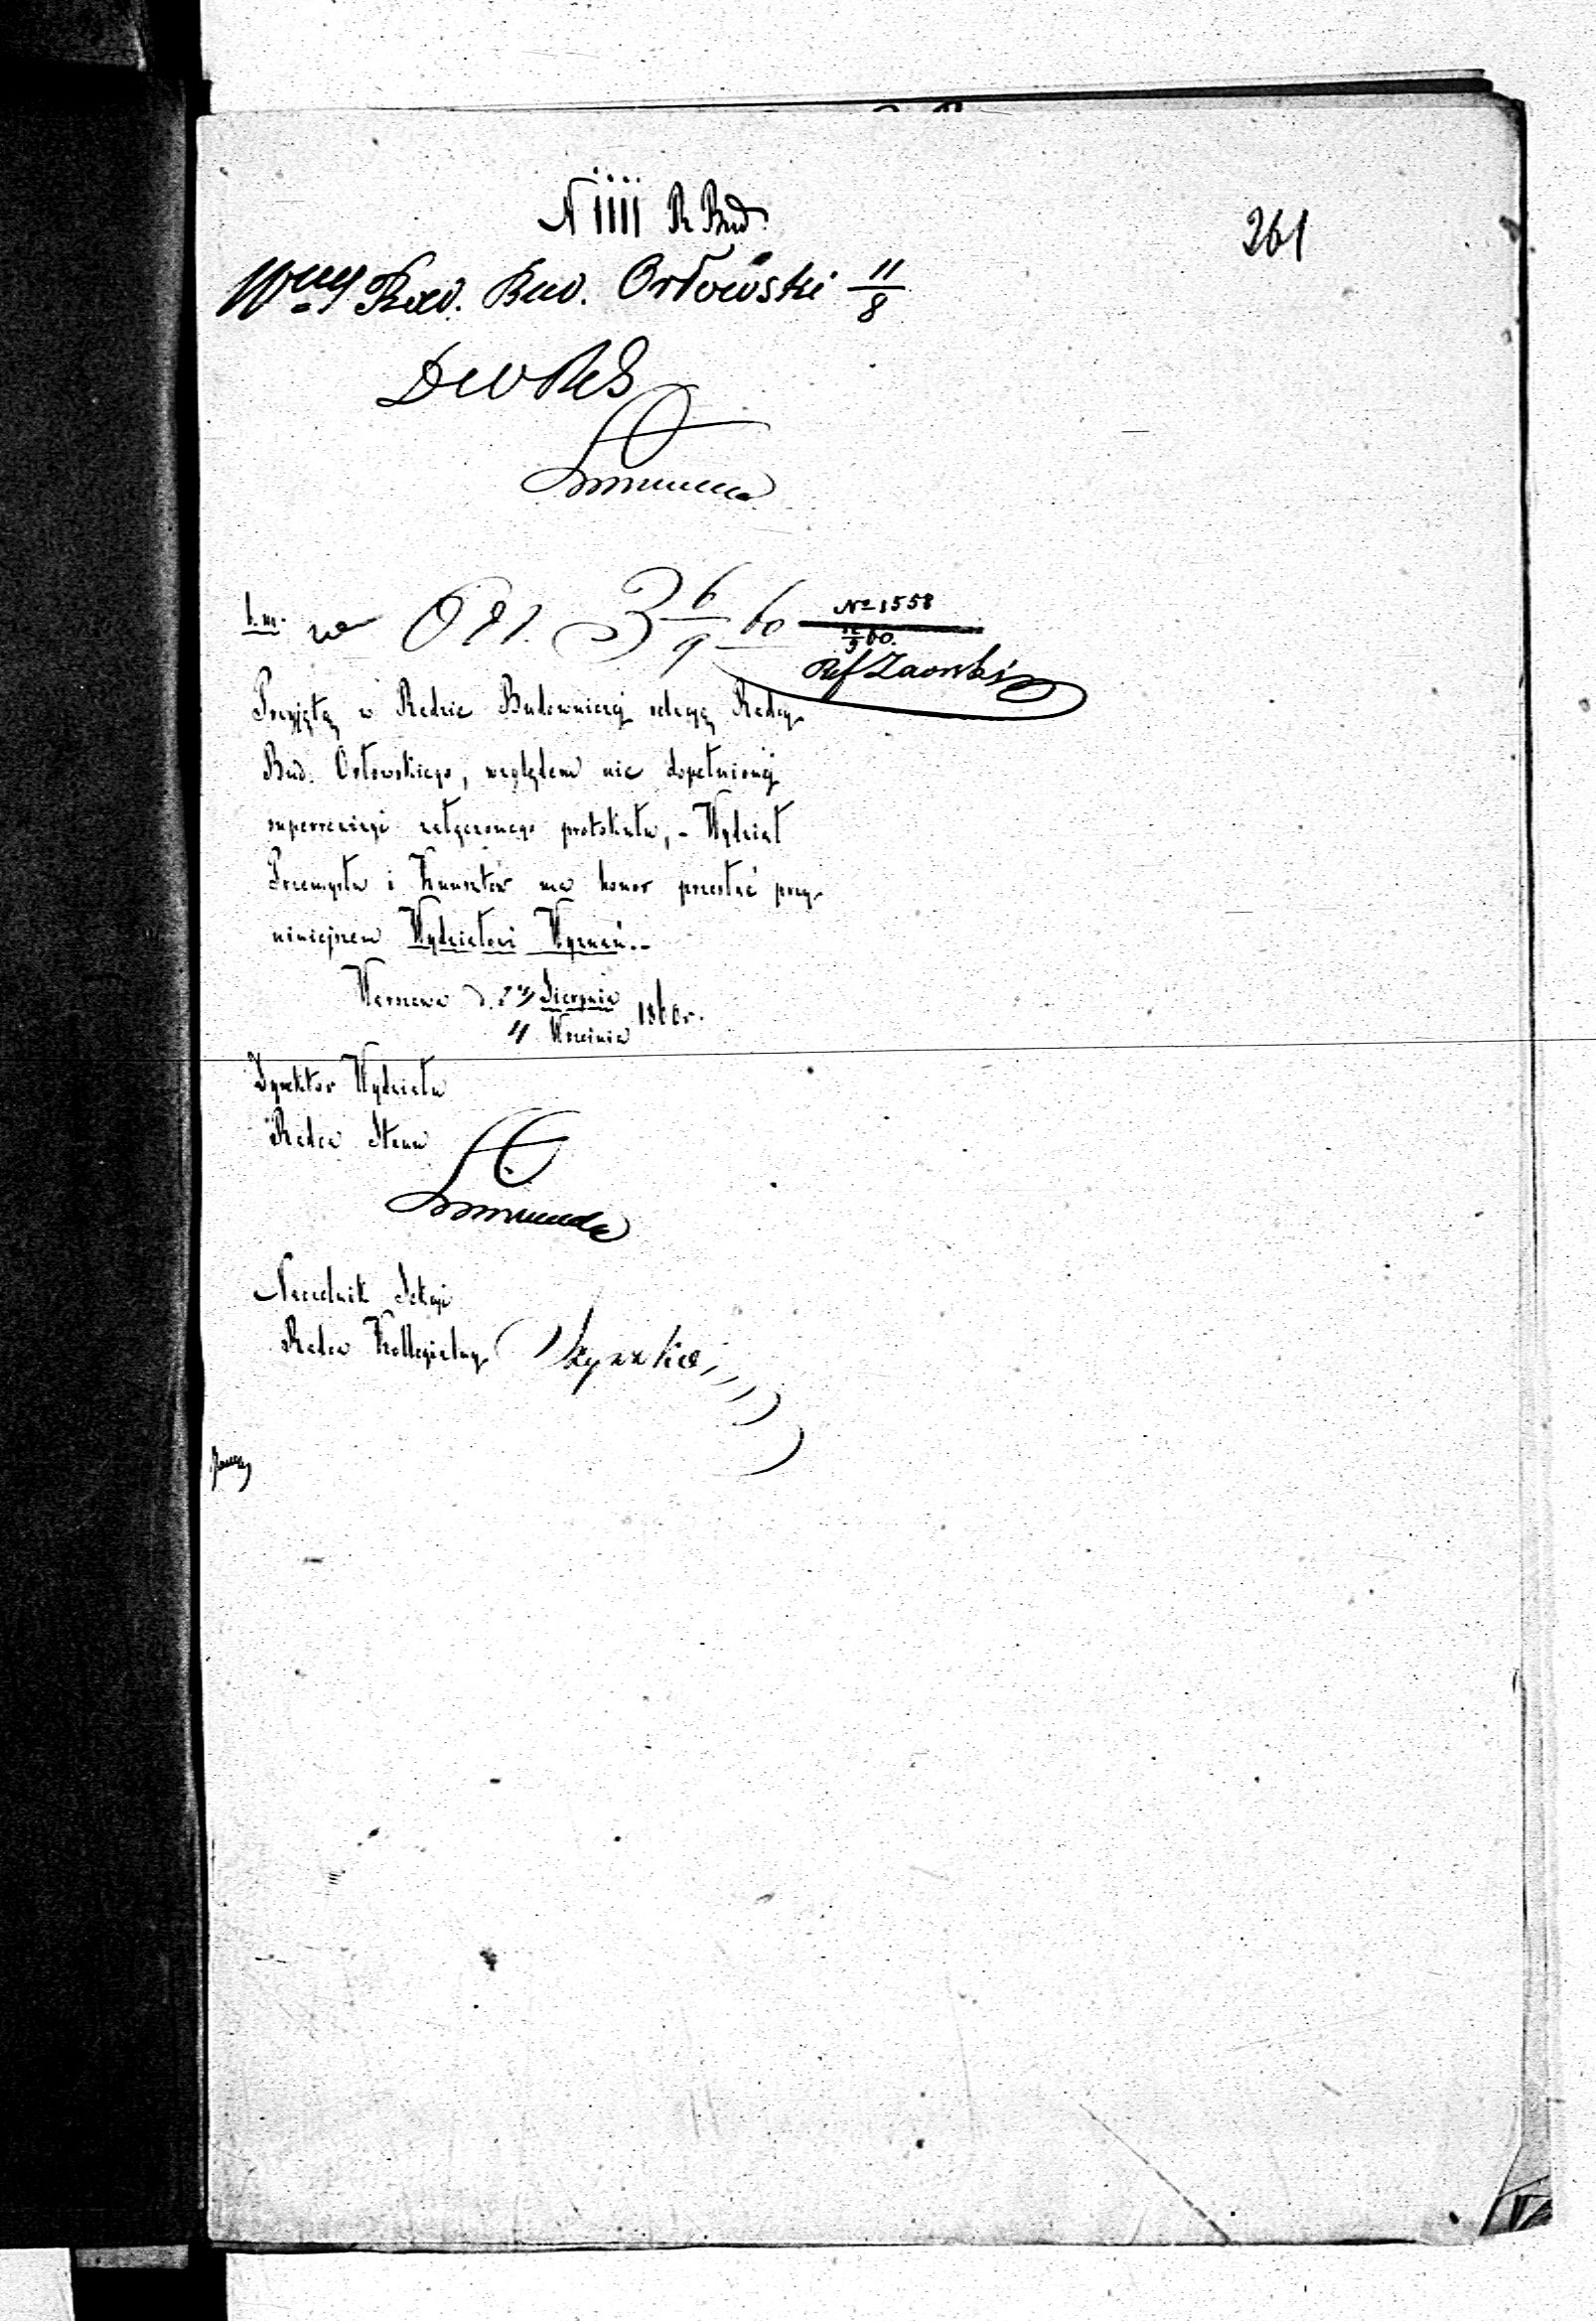 N 1111 R Bud.
261
Wny Rad. Bud. Orłowski 11/8
b. m.
6/9 60
No 1558
12/9 60.
Ref
Przyjętą w Radzie Budowniczej relacyą Radcy
Bud. Orłowskiego, względem nie dopełnionej
superrewizyi załączonego protokułu, - Wydział
Przemysłu i Kunsztów ma honor przesłać przy
niniejszem Wydziałowi Wyznań. -
Warszawa d. Sierpnia / Września 1860 r.
Dyrektor Wydziału
Radca Stanu
Naczelnik Sekcyi
Radca Kollegialny